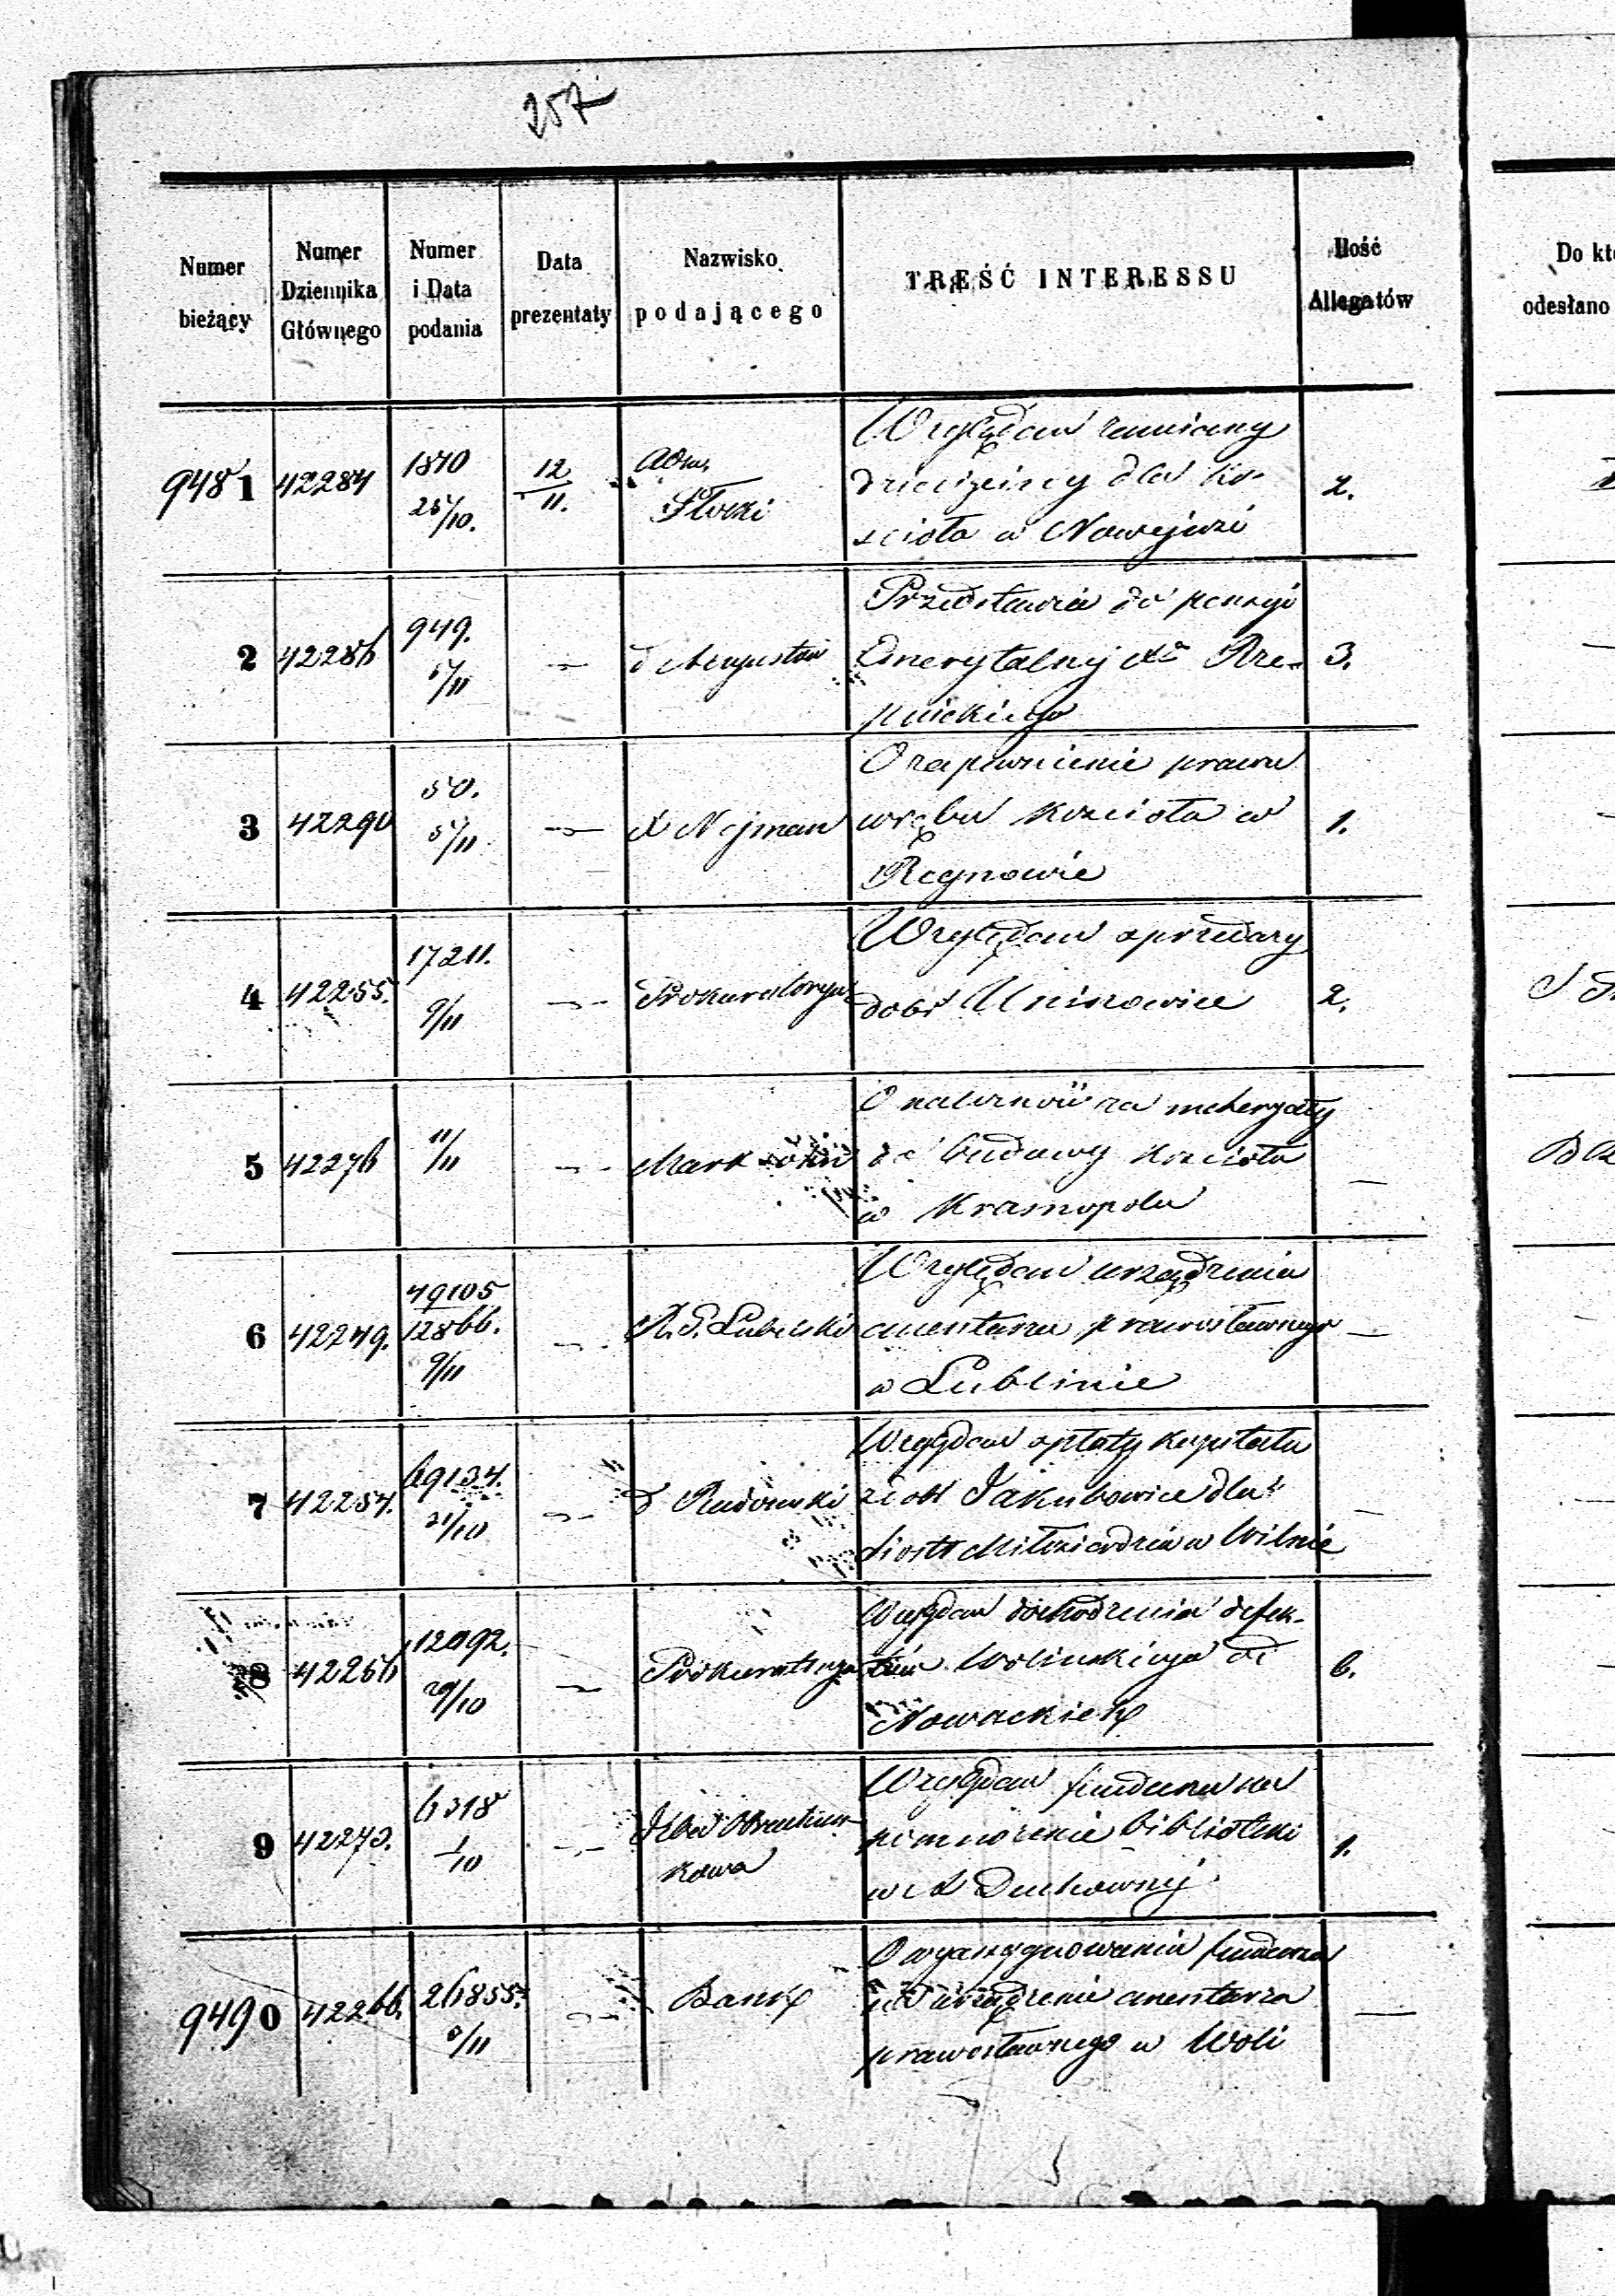 257
Numer bieżący
Numer Dziennika Głównego
Numer i Data podania
Data prezentaty
Nazwisko podającego
TREŚĆ INTERESSU
Ilość Allegatów
Do kt
odesłano
9481 42284 1810 25/10. 12/11. Adm. Płocki
Względem zamiany
dziesięciny dla ko-
ścioła w Nowejwsi
2.
2 42286 949. 5/11 — d Augustow
Przedstawia do pensyi
Emerytalnej Xa Rze-
pnickiego
3.
3 42290 50. 5/11 — X Nejman
O zapewnienie prawa
wrębu kościoła w
Regnowie
1.
4 42255. 17211. 9/11 — Prokuratorya
Względem sprzedaży
dobr Uninowice
2.
5 42276 11/11 — Mark
O należność za materyały
do budowy kościoła
w Krasnopolu
—
6 42249. 49105/12866. 9/11 — R. G. Lubelski
Względem urządzenia
cmentarza prawosławnego
w Lublinie
—
7 42254. 69134. 31/10 — d Radomski
Względem spłaty kapitału
z dobr Jakubowice dla
Siostr Miłosierdzia w Wilnie
—
8 42256 12092. 29/10 — Prokuratorya
Względem dochodzenia defek-
tów Wolinskiego od
Nowackich
6.
9 42273. 6318 1/10 — Izba Obrachun-
kowa
Względem funduszu na
pomnożenie biblioteki
w A Duchownej
1.
9490 42266. 26855. 5/11 — Bank
O wyasygnowaniu funduszu
na urządzenie cmentarza
prawosławnego w Woli
—